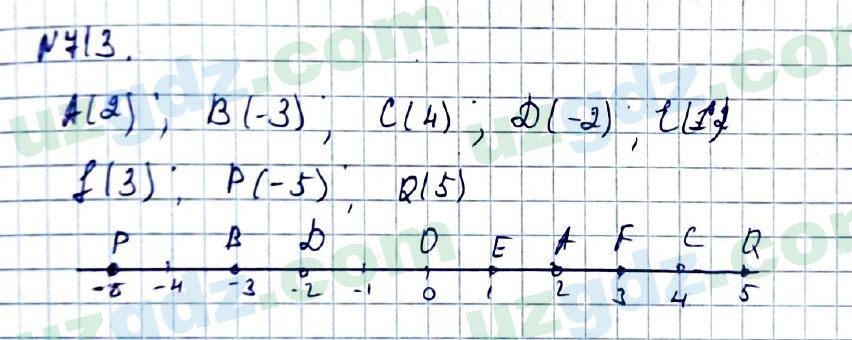 N713.
A(2); B(-3); C(4); D(-2); E(1);
F(3); P(-5); Q(5)
P B D O E A F C Q
-5 -4 -3 -2 -1 0 1 2 3 4 5
uzgdz.com